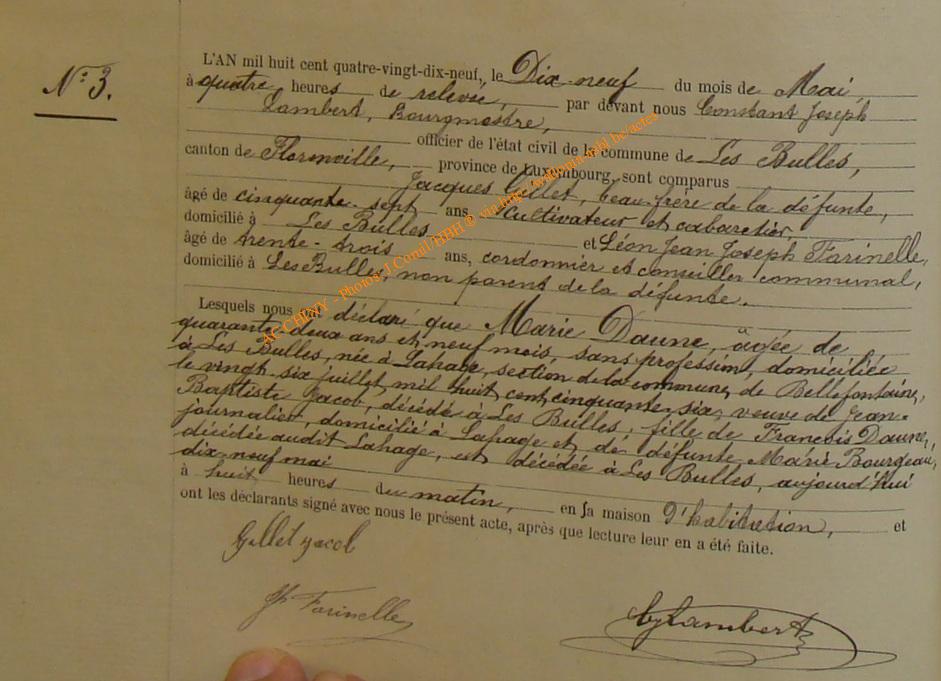 N° 3.
L'AN mil huit cent quatre-vingt-dix-neuf, le Dix-neuf du mois de Mai
à quatre heures de relevée, par devant nous Constant Joseph
Lambert, Bourgmestre,
officier de l'état civil de la commune de Les Bulles,
canton de Florenville, province de Luxembourg, sont comparus
Jacques Gillet, beau-frère de la défunte,
âgé de cinquante-sept ans, Cultivateur et cabaretier,
domicilié à Les Bulles et Léon Jean Joseph Farinelle,
âgé de trente-trois ans, cordonnier et conseiller communal,
domicilié à Les Bulles, non parent de la défunte.
Lesquels nous ont déclaré que Marie Daune, âgée de
quarante-deux ans et neuf mois, sans profession, domiciliée
à Les Bulles, née à Lahage, section de la commune de Bellefontaine,
le vingt-six juillet mil huit cent cinquante-six, veuve de Jean-
Baptiste Jacob, décédé à Les Bulles, fille de François Daune,
journalier, domicilié à Lahage et de défunte Marie Bourgeau,
décédée audit Lahage, est décédée à Les Bulles, aujourd'hui
dix-neuf mai
à huit heures du matin, en sa maison d'habitation, et
ont les déclarants signé avec nous le présent acte, après que lecture leur en a été faite.
Gillet Jacob
Farinelle
CJLambert
AC CHINY - Photos J.Comil/HBH @ via http://